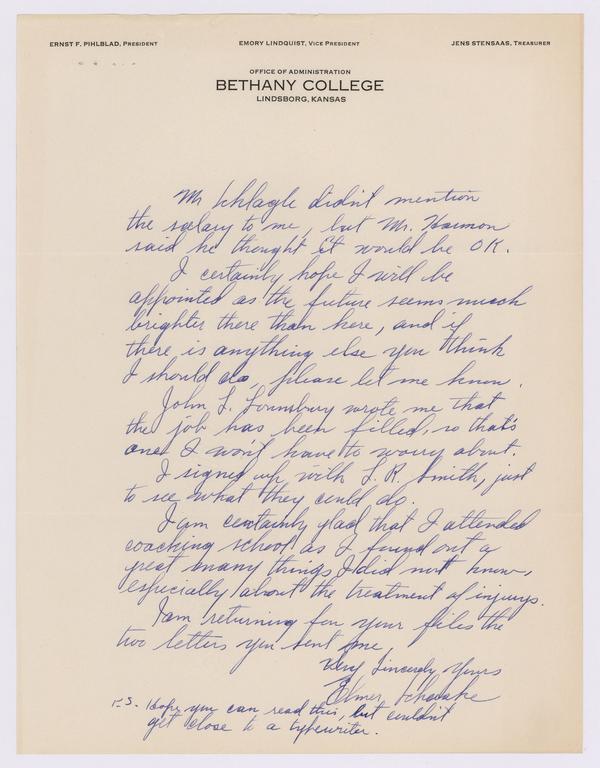 ERNST F. PIHLBLAD, PRESIDENT EMORY LINDQUIST, VICE PRESIDENT JENS STENSAAS, TREASURER
OFFICE OF ADMINISTRATION
BETHANY COLLEGE
LINDSBORG, KANSAS
Mr Schlagle didn't mention
the salary to me, but Mr. Harmon
said he thought it would be OK.
I certainly hope I will be
appointed as the future seems much
brighter there than here, and if
there is anything else you think
I should do, please let me know.
John L. Lounsbury wrote me that
the job has been filled, so that's
one I won't have to worry about.
I signed up with L. R. Smith, just
to see what they could do.
I am certainly glad that I attended
coaching school as I found out a
great many things I did not know,
especially about the treatment of injurys.
I am returning for your files the
two letters you sent me,
Very Sincerely Yours
Elmer Schaake
P.S. Hope you can read this, but couldn't
get close to a typewriter.